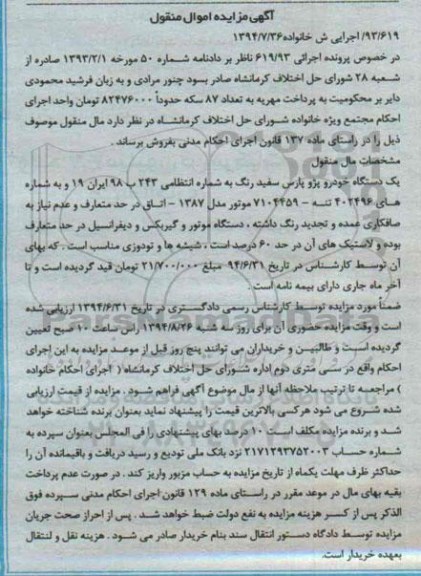 آگهی مزایده اموال منقول
۹۳/۶۱۹/ اجرایی ش خانواده۱۳۹۴/۷/۳۶
در خصوص پرونده اجرائی ۶۱۹/۹۳ ناظر بر دادنامه شماره ۵۰ مورخه ۱۳۹۳/۲/۱ صادره از
شعبه ۲۸ شورای حل اختلاف کرمانشاه صادر بسود چنور مرادی و به زیان فرشید محمودی
دایر بر محکومیت به پرداخت مهریه به تعداد ۸۷ سکه حدوداً ۸۲۴۷۶۰۰۰ تومان واحد اجرای
احکام مجتمع ویژه خانواده شورای حل اختلاف کرمانشاه در نظر دارد مال منقول موصوف
ذیل را در راستای ماده ۱۳۷ قانون اجرای احکام مدنی بفروش برساند.
مشخصات مال منقول
یک دستگاه خودرو پژو پارس سفید رنگ به شماره انتظامی ۲۴۳ ب ۹۸ ایران ۱۹ و به شماره
های ۴۰۲۴۹۶ تنه – ۷۱۰۴۴۵۹ موتور مدل ۱۳۸۷ – اتاق در حد متعارف و عدم نیاز به
صافکاری عمده و تجدید رنگ داشته ، دستگاه موتور و گیربکس و دیفرانسیل در حد متعارف
بوده و لاستیک های آن در حد ۶۰ درصد است ، شیشه ها و تودوزی مناسب است . که بهای
آن توسط کارشناس در تاریخ ۹۴/۶/۳۱ مبلغ ۲۱/۷۰۰/۰۰۰ تومان قید گردیده است و تا
آخر ماه جاری دارای بیمه نامه است .
ضمناً مورد مزایده توسط کارشناس رسمی دادگستری در تاریخ ۱۳۹۴/۶/۳۱ ارزیابی شده
است و وقت مزایده حضوری آن برای روز سه شنبه ۱۳۹۴/۸/۲۶ راس ساعت ۱۰ صبح تعیین
گردیده است و طالبین و خریداران می توانند پنج روز قبل از موعد مزایده به این اجرای
احکام واقع در سی متری دوم اداره شورای حل اختلاف کرمانشاه ( اجرای احکام خانواده
) مراجعه تا ترتیب ملاحظه آنها از مال موضوع آگهی فراهم شود . مزایده از قیمت ارزیابی
شده شروع می شود هرکسی بالاترین قیمت را پیشنهاد نماید بعنوان برنده شناخته خواهد
شد و برنده مزایده مکلف است ۱۰ درصد بهای پیشنهادی را فی المجلس بعنوان سپرده به
شماره حساب ۲۱۷۱۲۹۳۷۵۲۰۰۳ نزد بانک ملی تودیع و رسید دریافت و باقیمانده آن را
حداکثر ظرف مهلت یکماه از تاریخ مزایده به حساب مزبور واریز کند . در صورت عدم پرداخت
بقیه بهای مال در موعد مقرر در راستای ماده ۱۲۹ قانون اجرای احکام مدنی سپرده فوق
الذکر پس از کسر هزینه مزایده به نفع دولت ضبط خواهد شد . پس از احراز صحت جریان
مزایده توسط دادگاه دستور انتقال سند بنام خریدار صادر می شود . هزینه نقل و انتقال
بعهده خریدار است.